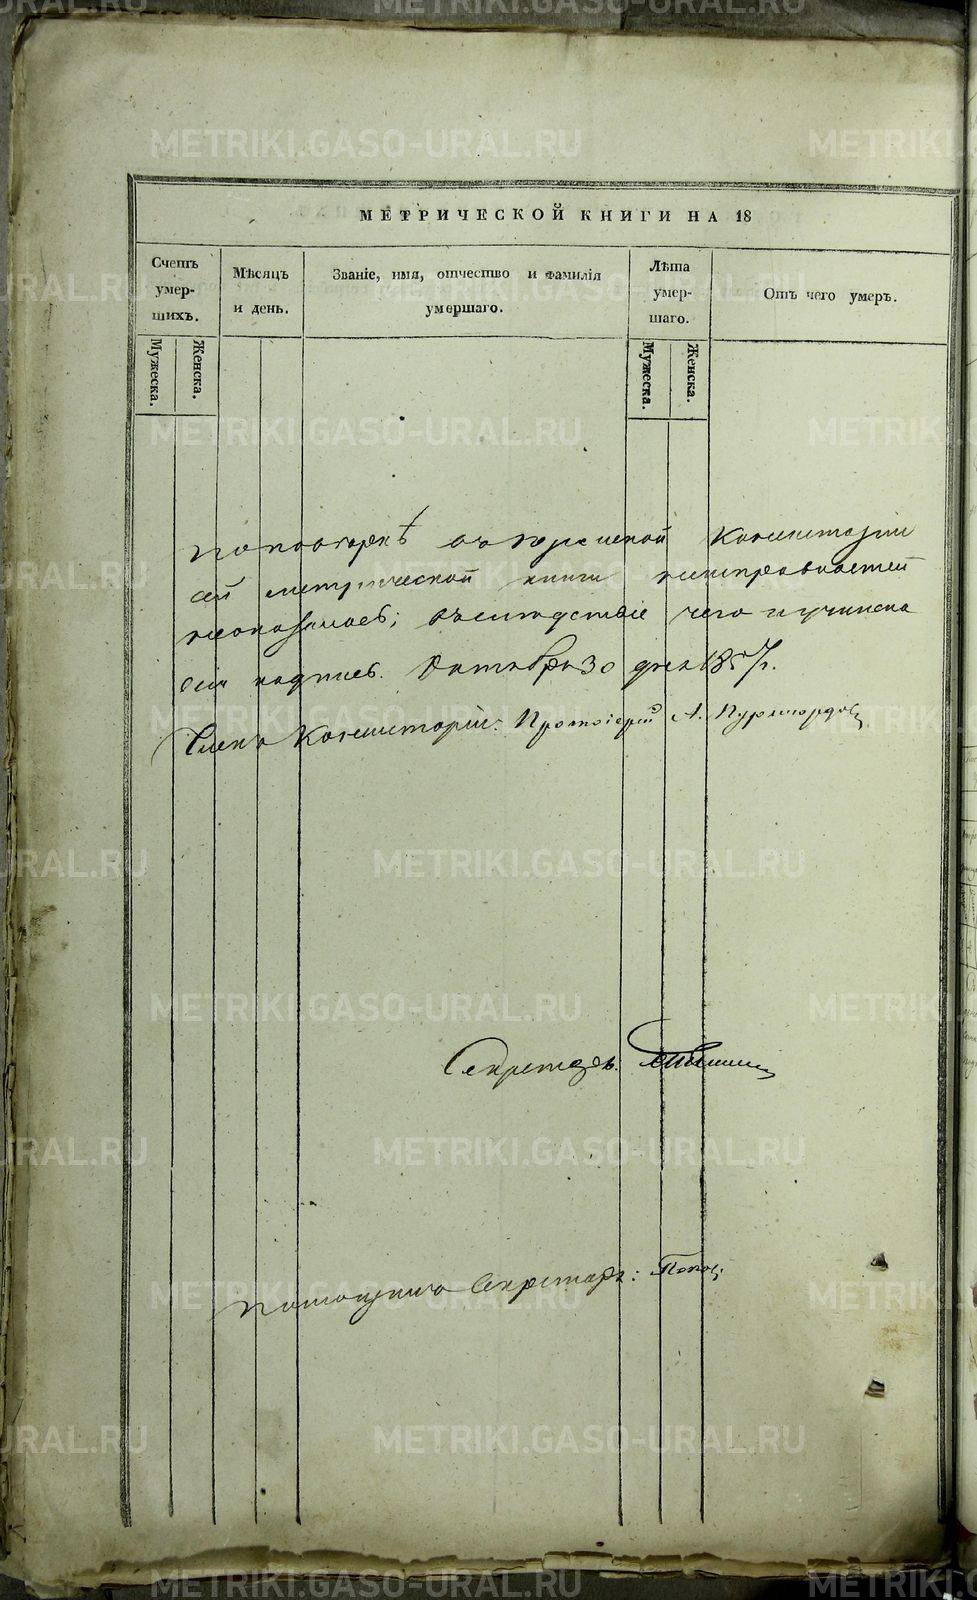 METRIKI.GASO-URAL.RU
МЕТРИЧЕСКОЙ КНИГИ НА 18
Счетъ умер-шихъ.
Мужеска.
Женска.
Мѣсяцъ и день.
Званіе, имя, отчество и фамилія умершаго.
Лѣта умер-шаго.
Мужеска.
Женска.
Отъ чего умеръ.
По повѣркѣ въ Пермской Консисторіи
сей метрической книги неисправностей
неоказалось; вслѣдствіе чего и учинена
сія надпись. Октября 30 дня 1857 г.
Членъ Консисторіи: Протоіерей А.
Секретарь
Помощникъ Секретаря: Попов